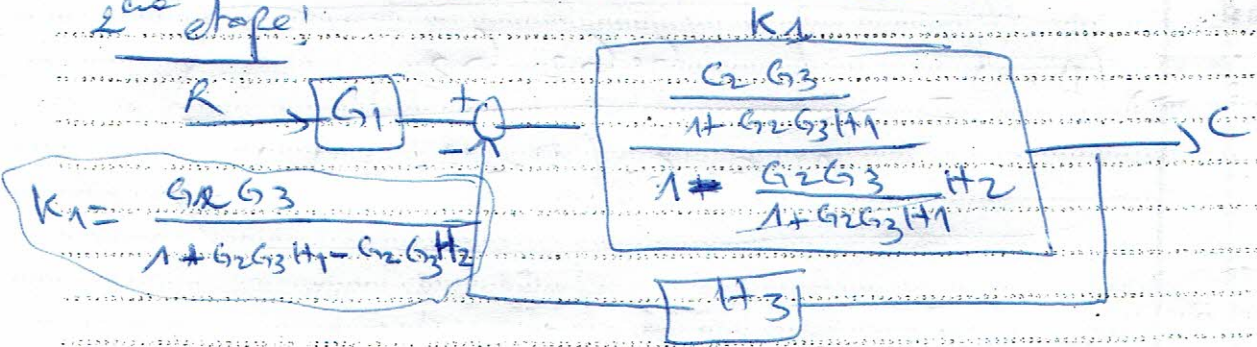 2ème etape!
K1
R G1 + C
G2 G3
1+ G2 G3 H1
1 - G2 G3 H2
1+ G2G3 H1
-
K1 = G2 G3
1 + G2G3 H1 - G2 G3 H2
H3